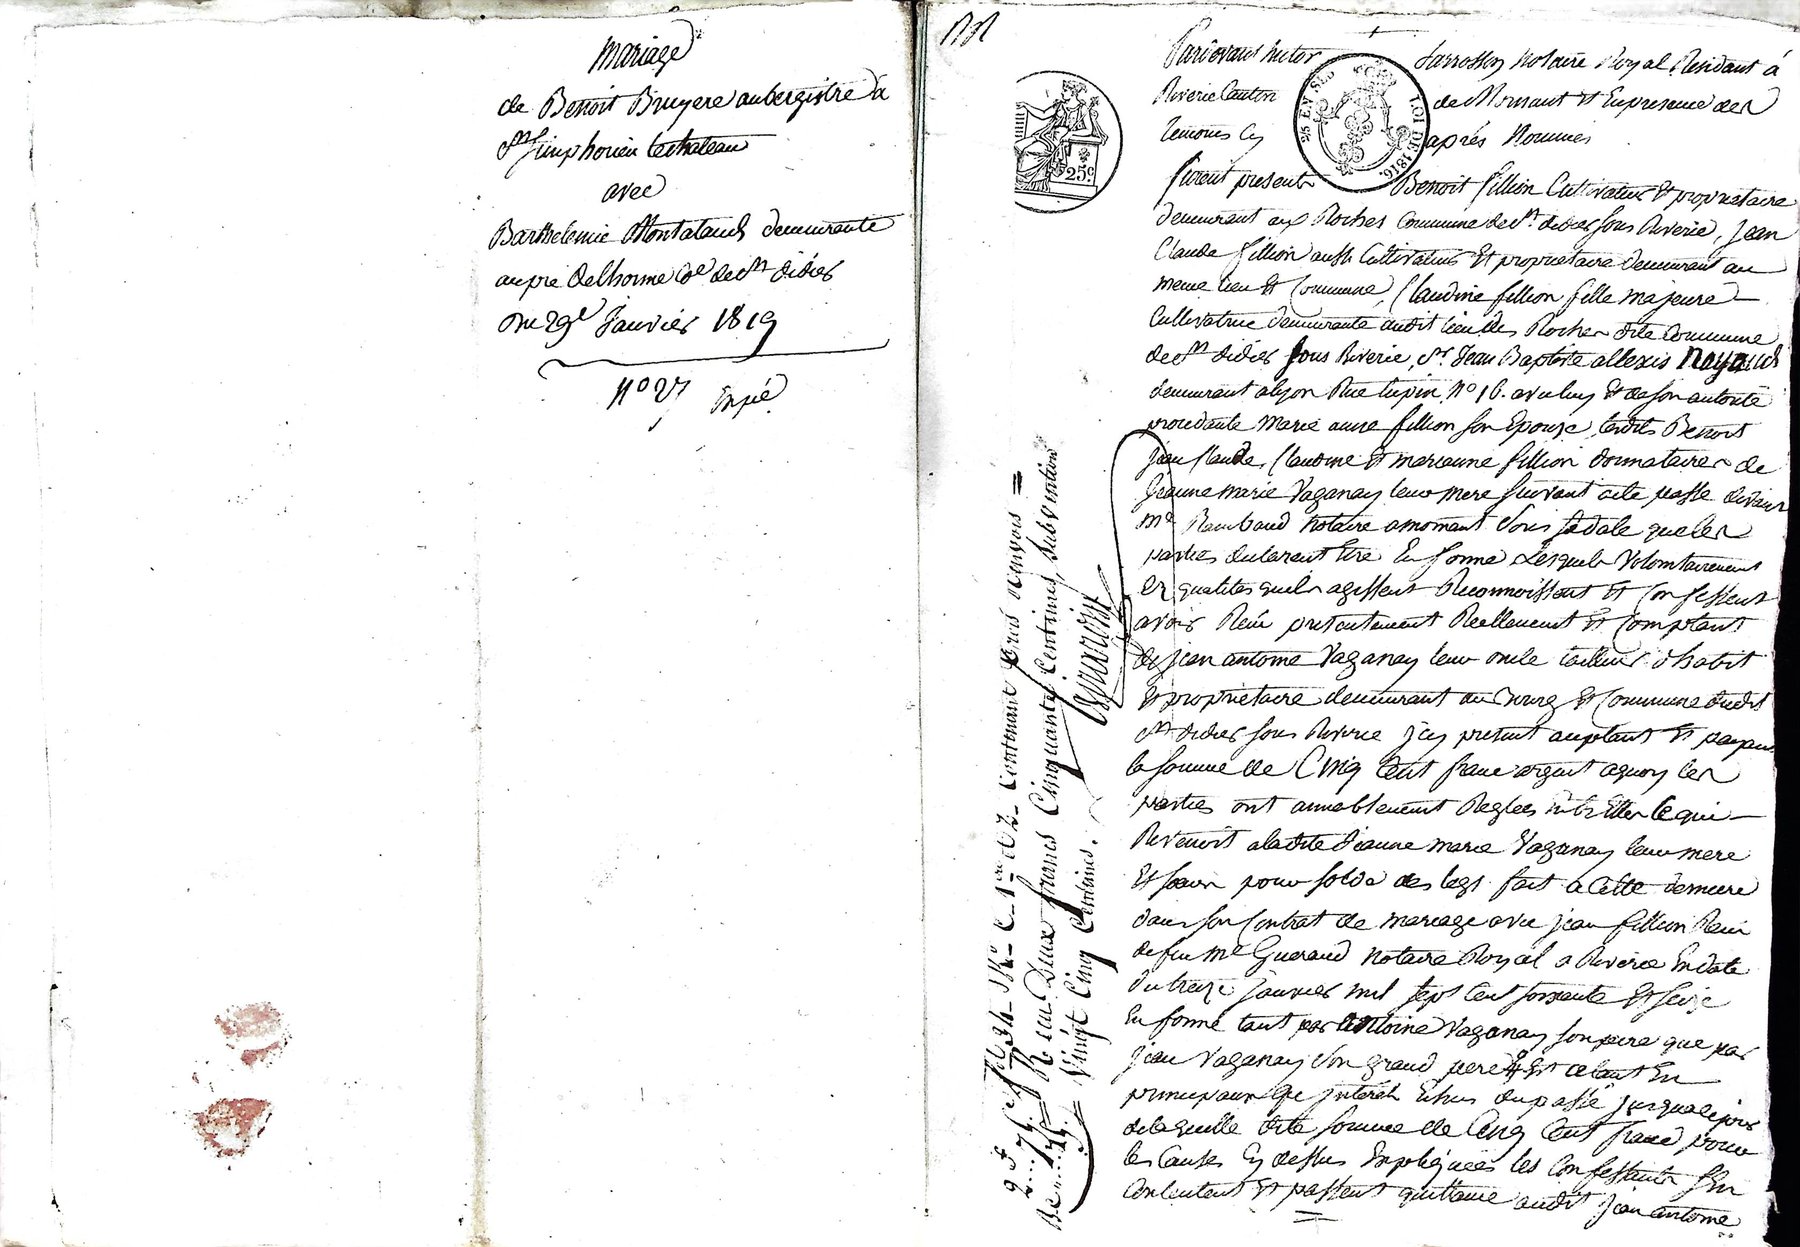 mariage
de Benoit Bruyere aubergistre à
St Simphorien lechateau
avec
Barthelemie Montaland demeurante
au pré delhorme Coe de St didier
du 29e Janvier 1819
No 27 Expié
Pardevant hector Sarrosson Notaire Royal Résidant à
Riverie Canton de Mornant Et En presence des
temoins Cy après Nommés
furent presents Benoit fillion Cultivateur Et proprietaire
demeurant aux Roches Commune de St didier sous Riverie, Jean
Claude fillion aussi Cultivateur Et proprietaire demeurant au
meme lieu Et Commune, Claudine fillion fille majeure
Cultivatrice demeurante audit lieu des Roches dite Commune
de St didier sous Riverie, Sr Jean Baptiste allexis Noyaud
demeurant a lyon Rue lupin No 16. avec luy Et de son autorité
procedante Marie anne fillion son Epouse, lesdits Benoit
jean Claude, Claudine Et marianne fillion donnataires de
Jeanne marie Vaganay leur mere suivant acte passé devant
Me Rambaud Notaire a mornant sous sa date que les
parties declarent Etre En forme Lesquels Volontairement
Es qualités quils agissent Reconnoissent Et Confessent
avoir Reçu presentement Reellement Et Comptant
de jean antoine Vaganay leur oncle tailleur d'habit
Et proprietaire demeurant au bourg Et Commune dudit
St didier sous Riverie icy present acceptant Et payant
la somme de Cinq Cent franc argent aquoy les
parties ont amiablement Reglées Entr'Elles le qui
Revenoit a ladite Jeanne marie Vaganay leur mere
Et soeur pour solde des legs fait a Cette derniere
dans son Contrat de mariage avec jean fillion Reçu
de feu Me Gueraud Notaire Royal a Riverie En date
du treize janvier mil sept Cent soixante Et seize
En forme tant par antoine Vaganay son pere que par
jean Vaganay son grand pere Et Celant En
principaux que jnterets Echus du passé jusqua ce jour
de laquelle dite somme de Cinq Cent franc pour
les Causes Cy dessus Expliquées les Confessants s'En
Contentent Et passent quittance audit jean antoine
contenant trois renvois
Reçu Deux francs Cinquante Centimes, subvention
Vingt Cinq Centimes.
25 EN SUS
LOI DE 1816.
25c.